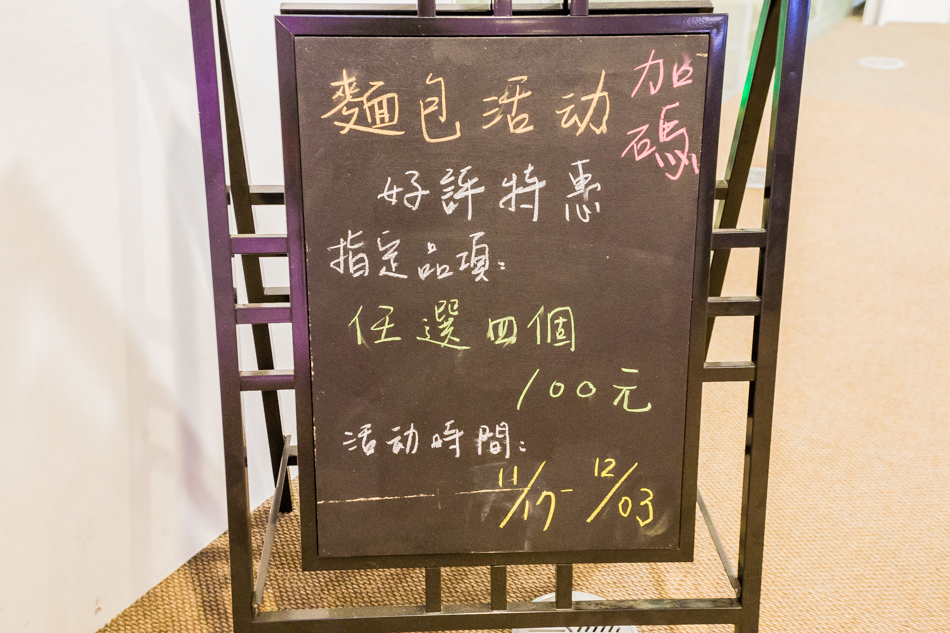 麵包活动
加碼
好評特惠
指定品項:
任選四個
100元
活动時間:
11/17-12/03